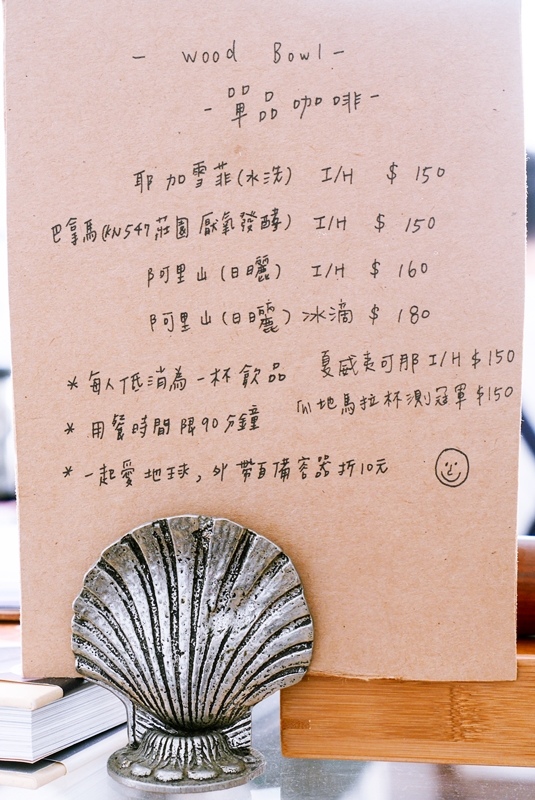 - Wood Bowl -
- 單品咖啡 -
耶加雪菲(水洗) I/H $ 150
巴拿馬(KN547莊園 厭氧發酵) I/H $ 150
阿里山(日曬) I/H $ 160
阿里山(日曬)冰滴 $ 180
夏威夷可那 I/H $150
瓜地馬拉杯測冠軍 $150
* 每人低消為一杯飲品
* 用餐時間限90分鐘
* 一起愛地球,外帶自備容器折10元